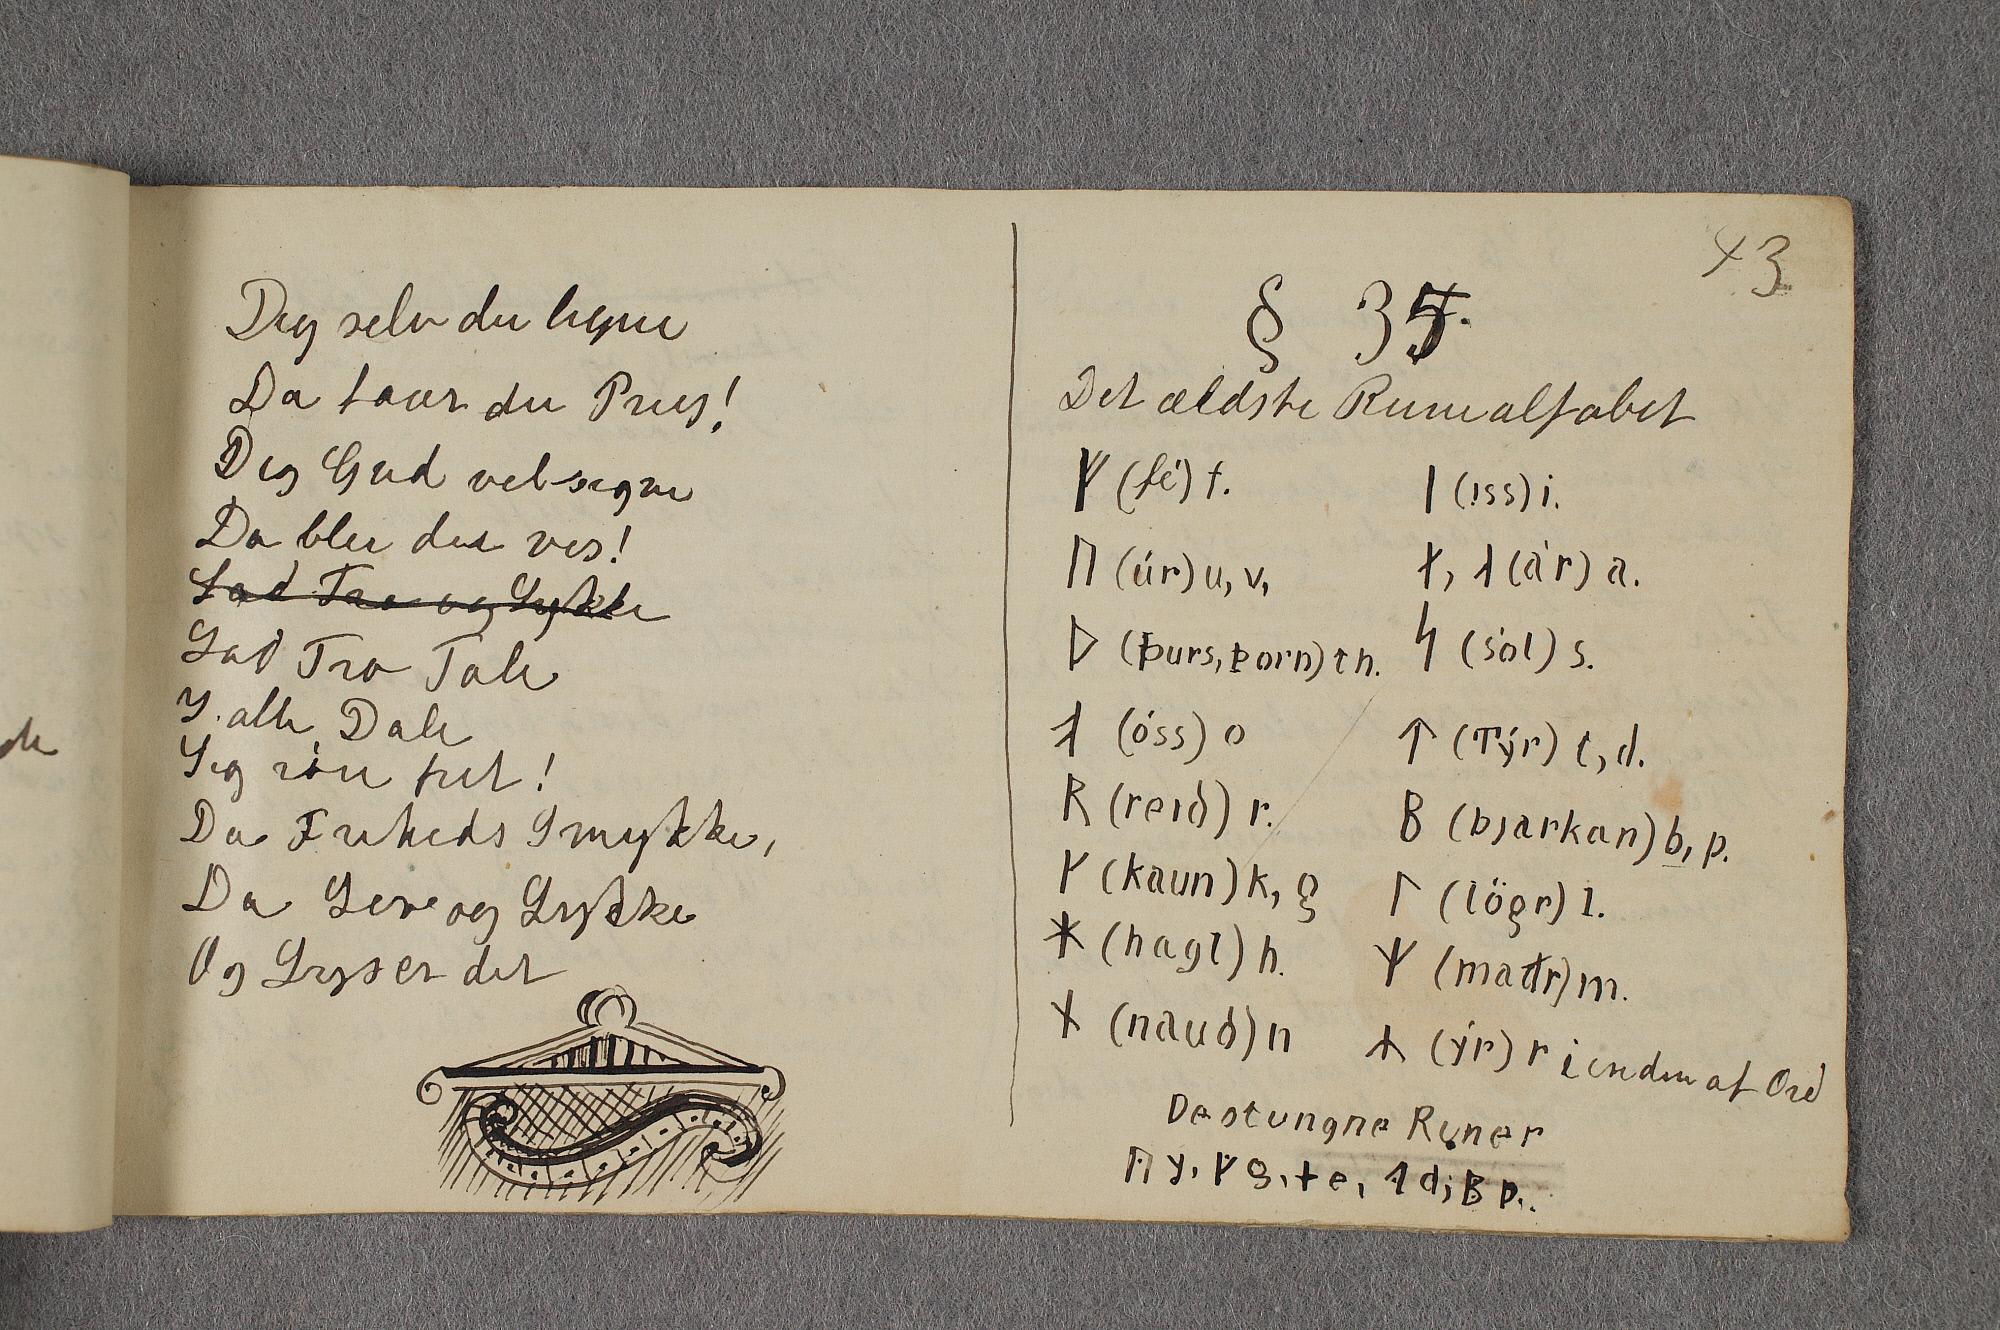 43
Dig selv du ligne
Da faaer du Priis!
Dig Gud velsigne
Da blir du viis!
Lad Tro og Lykke
Lad Tro Tale
I alle Dale
Sig röre frit!
Da Friheds Smykke,
Da Leve og Lykke
Og Lyser dit
§ 35.
Det ældste Runealfabet
ᚠ (fé) f.
ᚢ (úr) u, v,
ᚦ (þurs, þorn) th.
ᚮ (óss) o
ᚱ (reið) r.
ᚴ (kaun) k, g
ᚼ (hagl) h.
ᚾ (nauð) n
ᛁ (íss) i.
ᛅ, ᛆ (ár) a.
ᛋ (sól) s.
ᛏ (Týr) t, d.
ᛒ (bjarkan) b, p.
ᛚ (lögr) l.
ᛘ (maðr) m.
ᛦ (ýr) r i enden af Ord
De stungne Runer
ᚤ y, ᚵ g, ᛂ e, ᛑ d, ᛔ p.